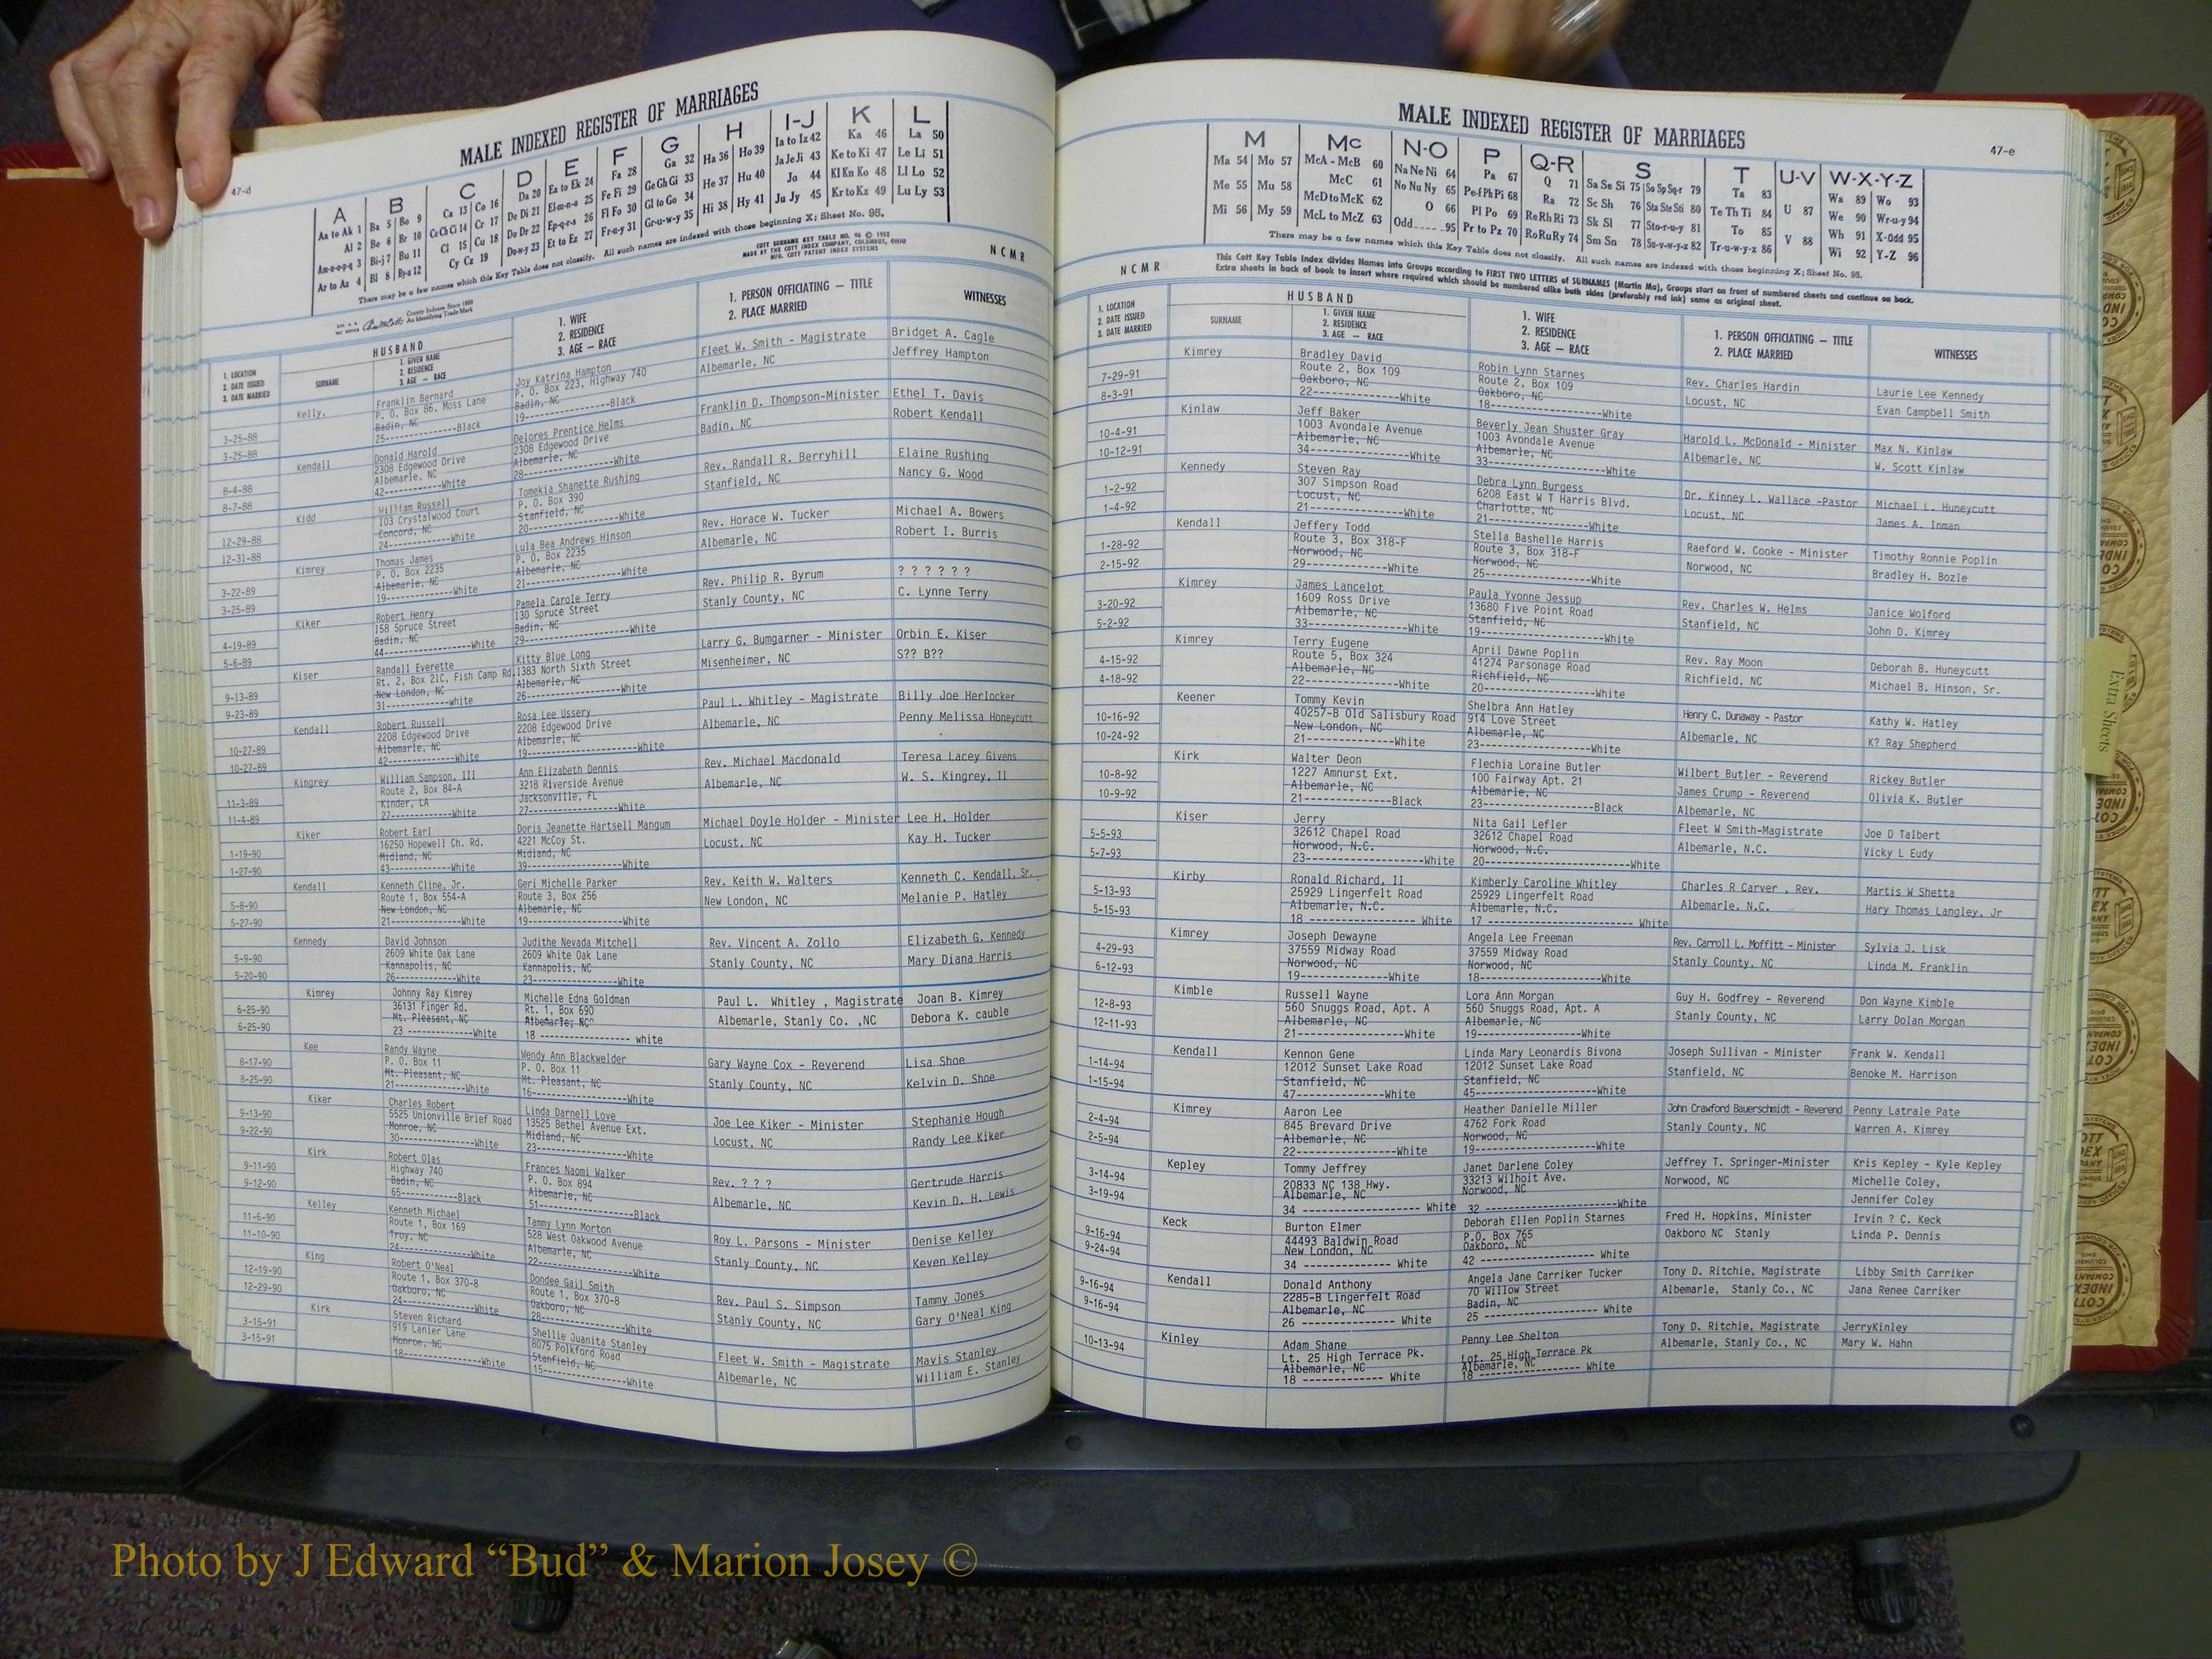 MALE INDEXED REGISTER OF MARRIAGES
47-d
A B C D E F G H I-J K L
Aa to Ak 1 Ba 5 Bo 9 Ca 13 Co 16 Da 20 Ea to Ek 24 Fa 28 Ga 32 Ha 36 Ho 39 Ia to Iz 42 Ka 46 La 50
Al 2 Be 6 Br 10 Ce Ch Ci 14 Cr 17 De Di 21 El-m-n-o 25 Fe Fi 29 Ge Gh Gi 33 He 37 Hu 40 Ja Je Ji 43 Ke to Ki 47 Le Li 51
Am-n-o-p-q 3 Bi-j 7 Bu 11 Cl 15 Cu 18 Do Dr 22 Ep-q-r-s 26 Fl Fo 30 Gl to Go 34 Hi 38 Hy 41 Jo 44 Kl Kn Ko 48 Ll Lo 52
Ar to Az 4 Bl 8 By-z 12 Cy Cz 19 Du-w-y 23 Et to Ez 27 Fr-u-y 31 Gr-u-w-y 35 Ju Jy 45 Kr to Kz 49 Lu Ly 53
There may be a few names which this Key Table does not classify. All such names are indexed with those beginning X; Sheet No. 95.
COTT SURNAME KEY TABLE NO. 96 © 1952
MADE BY THE COTT INDEX COMPANY, COLUMBUS, OHIO
MFG. COTT PATENT INDEX SYSTEMS
County Indexes Since 1888
An Identifying Trade Mark
NCMR
1. LOCATION
2. DATE ISSUED
3. DATE MARRIED
HUSBAND
SURNAME
1. GIVEN NAME
2. RESIDENCE
3. AGE — RACE
1. WIFE
2. RESIDENCE
3. AGE — RACE
1. PERSON OFFICIATING — TITLE
2. PLACE MARRIED
WITNESSES
Kelly. Franklin Bernard Joy Katrina Hampton Fleet W. Smith - Magistrate Bridget A. Cagle
P. O. Box 86, Moss Lane P. O. Box 223, Highway 740 Albemarle, NC Jeffrey Hampton
3-25-88 Badin, NC Badin, NC
3-25-88 25------------Black 19------------Black
Kendall Donald Harold Delores Prentice Helms Franklin D. Thompson-Minister Ethel T. Davis
2308 Edgewood Drive 2308 Edgewood Drive Badin, NC Robert Kendall
8-4-88 Albemarle, NC Albemarle, NC
8-7-88 42------------White 28------------White
Kidd William Russell Tomekia Shanette Rushing Rev. Randall R. Berryhill Elaine Rushing
103 Crystalwood Court P. O. Box 390 Stanfield, NC Nancy G. Wood
12-29-88 Concord, NC Stanfield, NC
12-31-88 24------------White 20------------White
Kimrey Thomas James Lula Bea Andrews Hinson Rev. Horace W. Tucker Michael A. Bowers
P. O. Box 2235 P. O. Box 2235 Albemarle, NC Robert I. Burris
3-22-89 Albemarle, NC Albemarle, NC
3-25-89 19------------White 21------------White
Kiker Robert Henry Pamela Carole Terry Rev. Philip R. Byrum ? ? ? ? ? ?
158 Spruce Street 130 Spruce Street Stanly County, NC C. Lynne Terry
4-19-89 Badin, NC Badin, NC
5-6-89 44------------White 29------------White
Kiser Randall Everette Kitty Blue Long Larry G. Bumgarner - Minister Orbin E. Kiser
Rt. 2, Box 21C, Fish Camp Rd. 1383 North Sixth Street Misenheimer, NC S?? B??
9-13-89 New London, NC Albemarle, NC
9-23-89 31------------white 26------------White
Kendall Robert Russell Rosa Lee Ussery Paul L. Whitley - Magistrate Billy Joe Herlocker
2208 Edgewood Drive 2208 Edgewood Drive Albemarle, NC Penny Melissa Honeycutt
10-27-89 Albemarle, NC Albemarle, NC
10-27-89 42------------White 19------------White
Kingrey William Sampson, III Ann Elizabeth Dennis Rev. Michael Macdonald Teresa Lacey Givens
Route 2, Box 84-A 3218 Riverside Avenue Albemarle, NC W. S. Kingrey, II
11-3-89 Kinder, LA Jacksonville, FL
11-4-89 27------------White 27------------White
Kiker Robert Earl Doris Jeanette Hartsell Mangum Michael Doyle Holder - Minister Lee H. Holder
16250 Hopewell Ch. Rd. 4221 McCoy St. Locust, NC Kay H. Tucker
1-19-90 Midland, NC Midland, NC
1-27-90 43------------White 39------------White
Kendall Kenneth Cline, Jr. Geri Michelle Parker Rev. Keith W. Walters Kenneth C. Kendall, Sr.
Route 1, Box 554-A Route 3, Box 256 New London, NC Melanie P. Hatley
5-8-90 New London, NC Albemarle, NC
5-27-90 21------------White 19------------White
Kennedy David Johnson Judithe Nevada Mitchell Rev. Vincent A. Zollo Elizabeth G. Kennedy
5-9-90 2609 White Oak Lane 2609 White Oak Lane Stanly County, NC Mary Diana Harris
5-20-90 Kannapolis, NC Kannapolis, NC
26------------White 23------------White
Kimrey Johnny Ray Kimrey Michelle Edna Goldman Paul L. Whitley , Magistrate Joan B. Kimrey
6-25-90 36131 Finger Rd. Rt. 1, Box 690 Albemarle, Stanly Co. ,NC Debora K. cauble
6-25-90 Mt. Pleasant, NC Albemarle, NC
23 ------------White 18 ------------ white
Kee Randy Wayne Wendy Ann Blackwelder Gary Wayne Cox - Reverend Lisa Shoe
8-17-90 P. O. Box 11 P. O. Box 11 Stanly County, NC Kelvin D. Shoe
8-25-90 Mt. Pleasant, NC Mt. Pleasant, NC
21------------White 16------------White
Kiker Charles Robert Linda Darnell Love Joe Lee Kiker - Minister Stephanie Hough
9-13-90 5525 Unionville Brief Road 13525 Bethel Avenue Ext. Locust, NC Randy Lee Kiker
9-22-90 Monroe, NC Midland, NC
30------------White 23------------White
Kirk Robert Olas Frances Naomi Walker Rev. ? ? ? Gertrude Harris
9-11-90 Highway 740 P. O. Box 894 Albemarle, NC Kevin D. H. Lewis
9-12-90 Badin, NC Albemarle, NC
65------------Black 51------------Black
Kelley Kenneth Michael Tammy Lynn Morton Roy L. Parsons - Minister Denise Kelley
11-6-90 Route 1, Box 169 528 West Oakwood Avenue Stanly County, NC Keven Kelley
11-10-90 Troy, NC Albemarle, NC
24------------White 22------------White
King Robert O'Neal Dondee Gail Smith Rev. Paul S. Simpson Tammy Jones
12-19-90 Route 1, Box 370-8 Route 1, Box 370-8 Stanly County, NC Gary O'Neal King
12-29-90 Oakboro, NC Oakboro, NC
24------------White 28------------White
Kirk Steven Richard Shellie Juanita Stanley Fleet W. Smith - Magistrate Mavis Stanley
3-15-91 919 Lanier Lane 8075 Polkford Road Albemarle, NC William E. Stanley
3-15-91 Monroe, NC Stanfield, NC
18------------White 15------------White
MALE INDEXED REGISTER OF MARRIAGES
47-e
M Mc N-O P Q-R S T U-V W-X-Y-Z
Ma 54 Mo 57 McA - McB 60 Na Ne Ni 64 Pa 67 Q 71 Sa Se Si 75 So Sp Sq-r 79 Ta 83 U 87 Wa 89 Wo 93
Me 55 Mu 58 McC 61 No Nu Ny 65 Pe-f Ph Pi 68 Ra 72 Sc Sh 76 Sta Ste Sti 80 Te Th Ti 84 V 88 We 90 Wr-u-y 94
Mi 56 My 59 McD to McK 62 O 66 Pl Po 69 Re Rh Ri 73 Sk Sl 77 Sto-r-u-y 81 To 85 Wh 91 X-Odd 95
McL to McZ 63 Odd 95 Pr to Pz 70 Ro Ru Ry 74 Sm Sn 78 Su-v-w-y-z 82 Tr-u-w-y-z 86 Wi 92 Y-Z 96
There may be a few names which this Key Table does not classify. All such names are indexed with those beginning X; Sheet No. 95.
This Cott Key Table Index divides Names into Groups according to FIRST TWO LETTERS of SURNAMES (Martin Ma), Groups start on front of numbered sheets and continue on back.
Extra sheets in back of book to insert where required which should be numbered alike both sides (preferably red ink) same as original sheet.
NCMR
1. LOCATION
2. DATE ISSUED
3. DATE MARRIED
HUSBAND
SURNAME
1. GIVEN NAME
2. RESIDENCE
3. AGE — RACE
1. WIFE
2. RESIDENCE
3. AGE — RACE
1. PERSON OFFICIATING — TITLE
2. PLACE MARRIED
WITNESSES
Kimrey Bradley David Robin Lynn Starnes Rev. Charles Hardin Laurie Lee Kennedy
7-29-91 Route 2, Box 109 Route 2, Box 109 Locust, NC Evan Campbell Smith
8-3-91 Oakboro, NC Oakboro, NC
22------------White 18------------White
Kinlaw Jeff Baker Beverly Jean Shuster Gray Harold L. McDonald - Minister Max N. Kinlaw
10-4-91 1003 Avondale Avenue 1003 Avondale Avenue Albemarle, NC W. Scott Kinlaw
10-12-91 Albemarle, NC Albemarle, NC
34------------White 33------------White
Kennedy Steven Ray Debra Lynn Burgess Dr. Kinney L. Wallace -Pastor Michael L. Huneycutt
1-2-92 307 Simpson Road 6208 East W T Harris Blvd. Locust, NC James A. Inman
1-4-92 Locust, NC Charlotte, NC
21------------White 21------------White
Kendall Jeffery Todd Stella Bashelle Harris Raeford W. Cooke - Minister Timothy Ronnie Poplin
1-28-92 Route 3, Box 318-F Route 3, Box 318-F Norwood, NC Bradley H. Bozle
2-15-92 Norwood, NC Norwood, NC
29------------White 25------------White
Kimrey James Lancelot Paula Yvonne Jessup Rev. Charles W. Helms Janice Wolford
3-20-92 1609 Ross Drive 13680 Five Point Road Stanfield, NC John D. Kimrey
5-2-92 Albemarle, NC Stanfield, NC
33------------White 19------------White
Kimrey Terry Eugene April Dawne Poplin Rev. Ray Moon Deborah B. Huneycutt
4-15-92 Route 5, Box 324 41274 Parsonage Road Richfield, NC Michael B. Hinson, Sr.
4-18-92 Albemarle, NC Richfield, NC
22------------White 20------------White
Keener Tommy Kevin Shelbra Ann Hatley Henry C. Dunaway - Pastor Kathy W. Hatley
10-16-92 40257-B Old Salisbury Road 914 Love Street Albemarle, NC K? Ray Shepherd
10-24-92 New London, NC Albemarle, NC
21------------White 23------------White
Kirk Walter Deon Flechia Loraine Butler Wilbert Butler - Reverend Rickey Butler
10-8-92 1227 Amnurst Ext. 100 Fairway Apt. 21 James Crump - Reverend Olivia K. Butler
10-9-92 Albemarle, NC Albemarle, NC Albemarle, NC
21------------Black 23------------Black
Kiser Jerry Nita Gail Lefler Fleet W Smith-Magistrate Joe D Talbert
5-5-93 32612 Chapel Road 32612 Chapel Road Albemarle, N.C. Vicky L Eudy
5-7-93 Norwood, N.C. Norwood, N.C.
23------------White 20------------White
Kirby Ronald Richard, II Kimberly Caroline Whitley Charles R Carver , Rev. Martis W Shetta
5-13-93 25929 Lingerfelt Road 25929 Lingerfelt Road Albemarle, N.C. Hary Thomas Langley, Jr
5-15-93 Albemarle, N.C. Albemarle, N.C.
18 ------------ White 17 ------------ White
Kimrey Joseph Dewayne Angela Lee Freeman Rev. Carroll L. Moffitt - Minister Sylvia J. Lisk
4-29-93 37559 Midway Road 37559 Midway Road Stanly County, NC Linda M. Franklin
6-12-93 Norwood, NC Norwood, NC
19------------White 18------------White
Kimble Russell Wayne Lora Ann Morgan Guy H. Godfrey - Reverend Don Wayne Kimble
12-8-93 560 Snuggs Road, Apt. A 560 Snuggs Road, Apt. A Stanly County, NC Larry Dolan Morgan
12-11-93 Albemarle, NC Albemarle, NC
21------------White 19------------White
Kendall Kennon Gene Linda Mary Leonardis Bivona Joseph Sullivan - Minister Frank W. Kendall
1-14-94 12012 Sunset Lake Road 12012 Sunset Lake Road Stanfield, NC Benoke M. Harrison
1-15-94 Stanfield, NC Stanfield, NC
47------------White 45------------White
Kimrey Aaron Lee Heather Danielle Miller John Crawford Bauerschmidt - Reverend Penny Latrale Pate
2-4-94 845 Brevard Drive 4762 Fork Road Stanly County, NC Warren A. Kimrey
2-5-94 Albemarle, NC Norwood, NC
22------------White 19------------White
Kepley Tommy Jeffrey Janet Darlene Coley Jeffrey T. Springer-Minister Kris Kepley - Kyle Kepley
3-14-94 20833 NC 138 Hwy. 33213 Wilhoit Ave. Norwood, NC Michelle Coley,
3-19-94 Albemarle, NC Norwood, NC Jennifer Coley
34 ------------ White 32 ------------White
Keck Burton Elmer Deborah Ellen Poplin Starnes Fred H. Hopkins, Minister Irvin ? C. Keck
9-16-94 44493 Baldwin Road P.O. Box 765 Oakboro NC Stanly Linda P. Dennis
9-24-94 New London, NC Oakboro, NC
34 ------------ White 42 ------------ White
Kendall Donald Anthony Angela Jane Carriker Tucker Tony D. Ritchie, Magistrate Libby Smith Carriker
9-16-94 2285-B Lingerfelt Road 70 Willow Street Albemarle, Stanly Co., NC Jana Renee Carriker
9-16-94 Albemarle, NC Badin, NC
26 ------------ White 25 ------------ White
Kinley Adam Shane Penny Lee Shelton Tony D. Ritchie, Magistrate JerryKinley
10-13-94 Lt. 25 High Terrace Pk. Lot. 25 High Terrace Pk Albemarle, Stanly Co., NC Mary W. Hahn
Albemarle, NC Albemarle, NC
18 ------------ White 18 ------------ White
Extra Sheets
Photo by J Edward “Bud” & Marion Josey ©